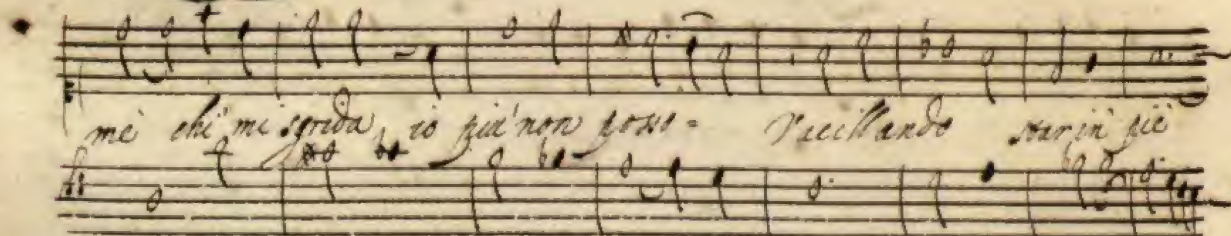 me chi mi sgrida, io piu non posso = Vacillando star in pie